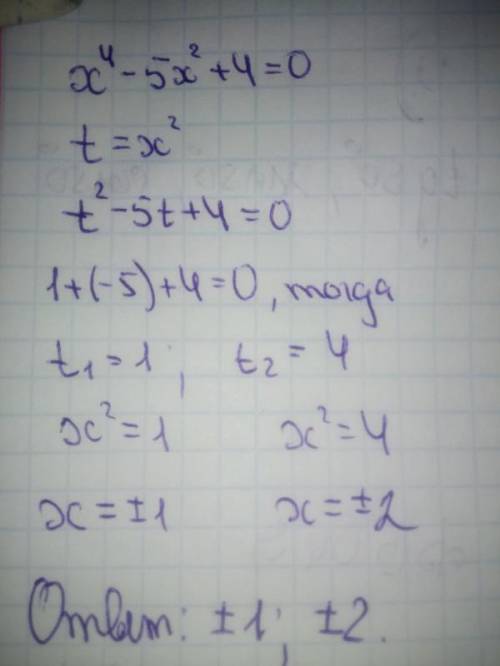 x⁴ - 5x² + 4 = 0
t = x²
t² - 5t + 4 = 0
1 + (-5) + 4 = 0, тогда
t₁ = 1; t₂ = 4
x² = 1 x² = 4
x = ±1 x = ±2
Ответ: ±1; ±2.